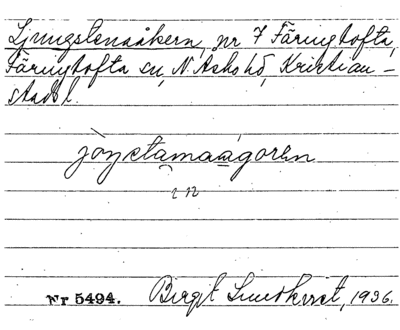 Ljungstensåkern, nr 7 Färingtofta,
Färingtofta sn, N. Åsbo hd, Kristian-
stads l.
in
Nr 5494. Birgit Lundkvist, 1936.